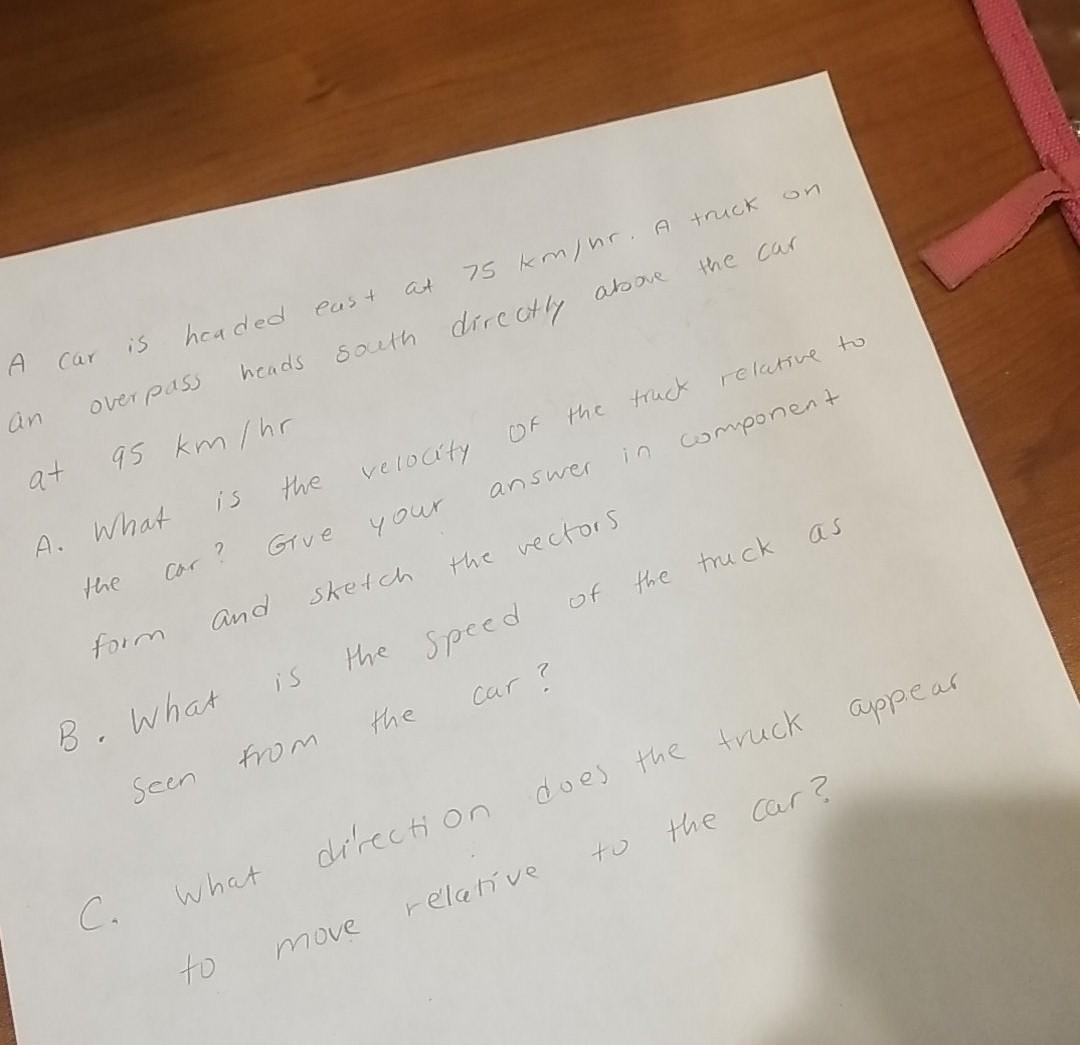 A car is headed east at 75 km/hr. A truck on
an overpass heads south directly above the car
at 95 km/hr
A. What is the velocity of the truck relative to
the car? Give your answer in component
form and sketch the vectors
B. What is the speed of the truck as
seen from the car?
C. What direction does the truck appear
to move relative to the car?